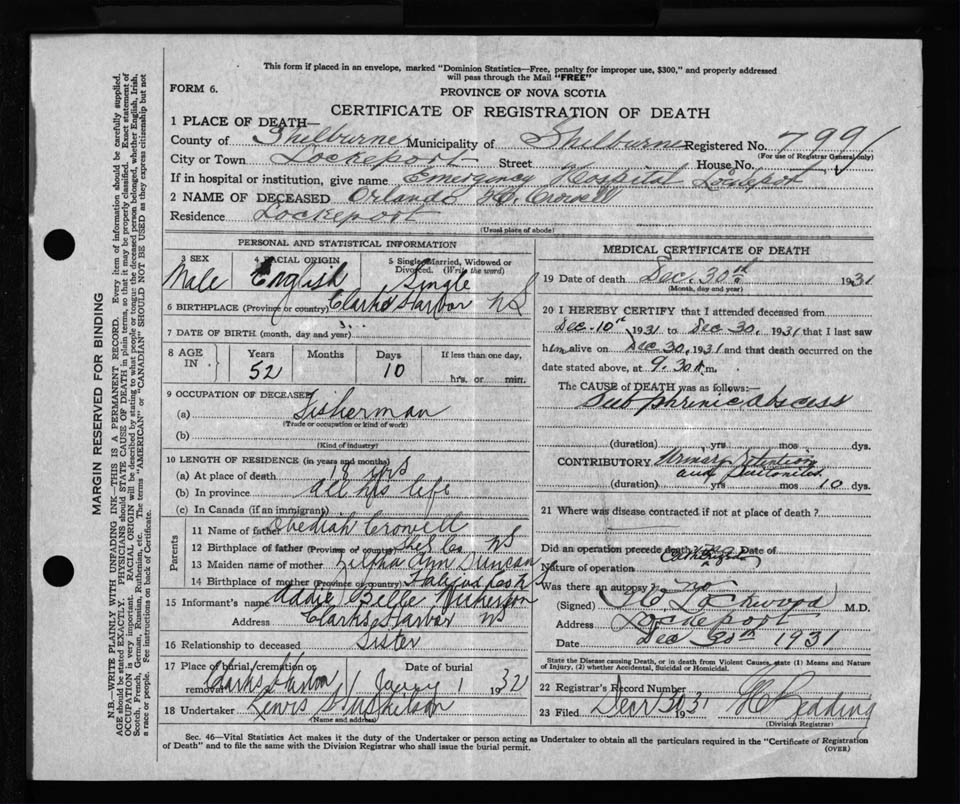 This form if placed in an envelope, marked "Dominion Statistics—Free, penalty for improper use, $300," and properly addressed
will pass through the Mail "FREE"
FORM 6.
PROVINCE OF NOVA SCOTIA
CERTIFICATE OF REGISTRATION OF DEATH
1 PLACE OF DEATH—
County of Shelburne Municipality of Shelburne Registered No. 7991
(For use of Registrar General only)
City or Town Lockeport Street House No.
If in hospital or institution, give name Emergency Hospital Lockeport
2 NAME OF DECEASED Orlando H. Crowell
Residence Lockeport
(Usual place of abode)
PERSONAL AND STATISTICAL INFORMATION
3 SEX 4 RACIAL ORIGIN 5 Single, Married, Widowed or Divorced. (Write the word)
Male English Single
6 BIRTHPLACE (Province or country) Clarks Harbor NS
7 DATE OF BIRTH (month, day and year)
8 AGE IN Years Months Days If less than one day,
52 10 hrs. or min.
9 OCCUPATION OF DECEASED
(a) Fisherman
(Trade or occupation or kind of work)
(b)
(Kind of industry)
10 LENGTH OF RESIDENCE (in years and months)
(a) At place of death 18 yrs
(b) In province all his life
(c) In Canada (if an immigrant)
Parents
11 Name of father Obediah Crowell
12 Birthplace of father (Province or country) Shel Co NS
13 Maiden name of mother Zilpha Ann Duncan
14 Birthplace of mother (Province or country)
15 Informant's name Addie Belle Nickerson
Address Clarks Harbor NS
16 Relationship to deceased Sister
17 Place of burial, cremation or removal Clarks Harbor Date of burial Jany 1 1932
18 Undertaker Lewis
(Name and address)
MEDICAL CERTIFICATE OF DEATH
19 Date of death Dec. 30th 1931
(Month, day and year)
20 I HEREBY CERTIFY that I attended deceased from
Dec. 10th 1931 to Dec 30, 1931 that I last saw
him alive on Dec 30, 1931 and that death occurred on the
date stated above, at 9.30 m.
The CAUSE of DEATH was as follows:—
Sub phrinic abscess
(duration) yrs mos dys.
CONTRIBUTORY
and
(duration) yrs. mos. 10 dys.
21 Where was disease contracted if not at place of death?
Did an operation precede death? Date of
Nature of operation
Was there an autopsy? no
(Signed) Lockwood M.D.
Address Lockeport
Date Dec 30th 1931
State the Disease causing Death, or in death from Violent Causes, state (1) Means and Nature
of Injury, (2) whether Accidental, Suicidal or Homicidal.
22 Registrar's Record Number
23 Filed Decr 30 1931 Redding
(Division Registrar)
Sec. 46—Vital Statistics Act makes it the duty of the Undertaker or person acting as Undertaker to obtain all the particulars required in the "Certificate of Registration
of Death" and to file the same with the Division Registrar who shall issue the burial permit.
(OVER)
MARGIN RESERVED FOR BINDING
N.B.—WRITE PLAINLY WITH UNFADING INK—THIS IS A PERMANENT RECORD. Every item of information should be carefully supplied.
AGE should be stated EXACTLY. PHYSICIANS should STATE CAUSE OF DEATH in plain terms, so that it may be properly classified. Exact statement of
OCCUPATION is very important. RACIAL ORIGIN will be described by stating to what people or tongue the deceased person belonged, whether English, Irish,
Scotch, French, German, Russian, Ruthenian, etc. The terms "AMERICAN" or "CANADIAN" SHOULD NOT BE USED as they express citizenship but not
a race or people. See instructions on back of Certificate.